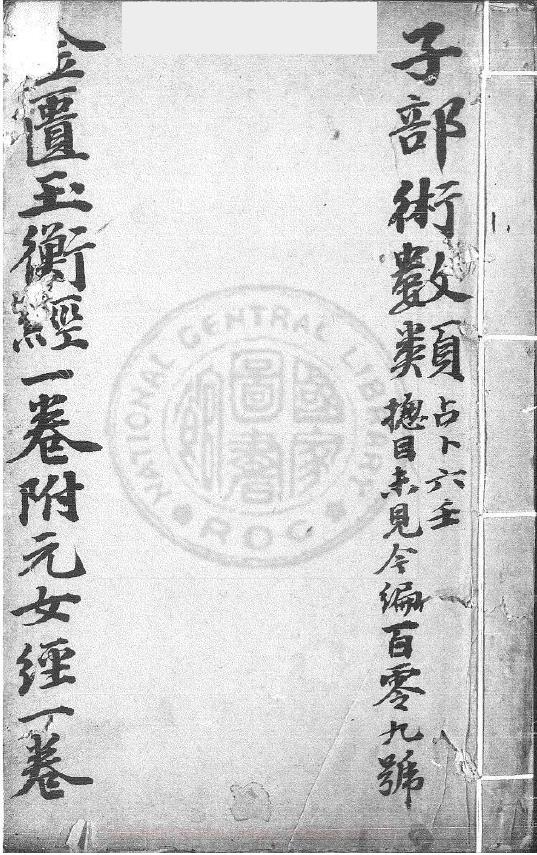 子部術數類
占卜六壬
總目未見今編一百零九號
金匱玉衡經一卷附元女經一卷
NATIONAL CENTRAL LIBRARY
國家圖書館
ROC